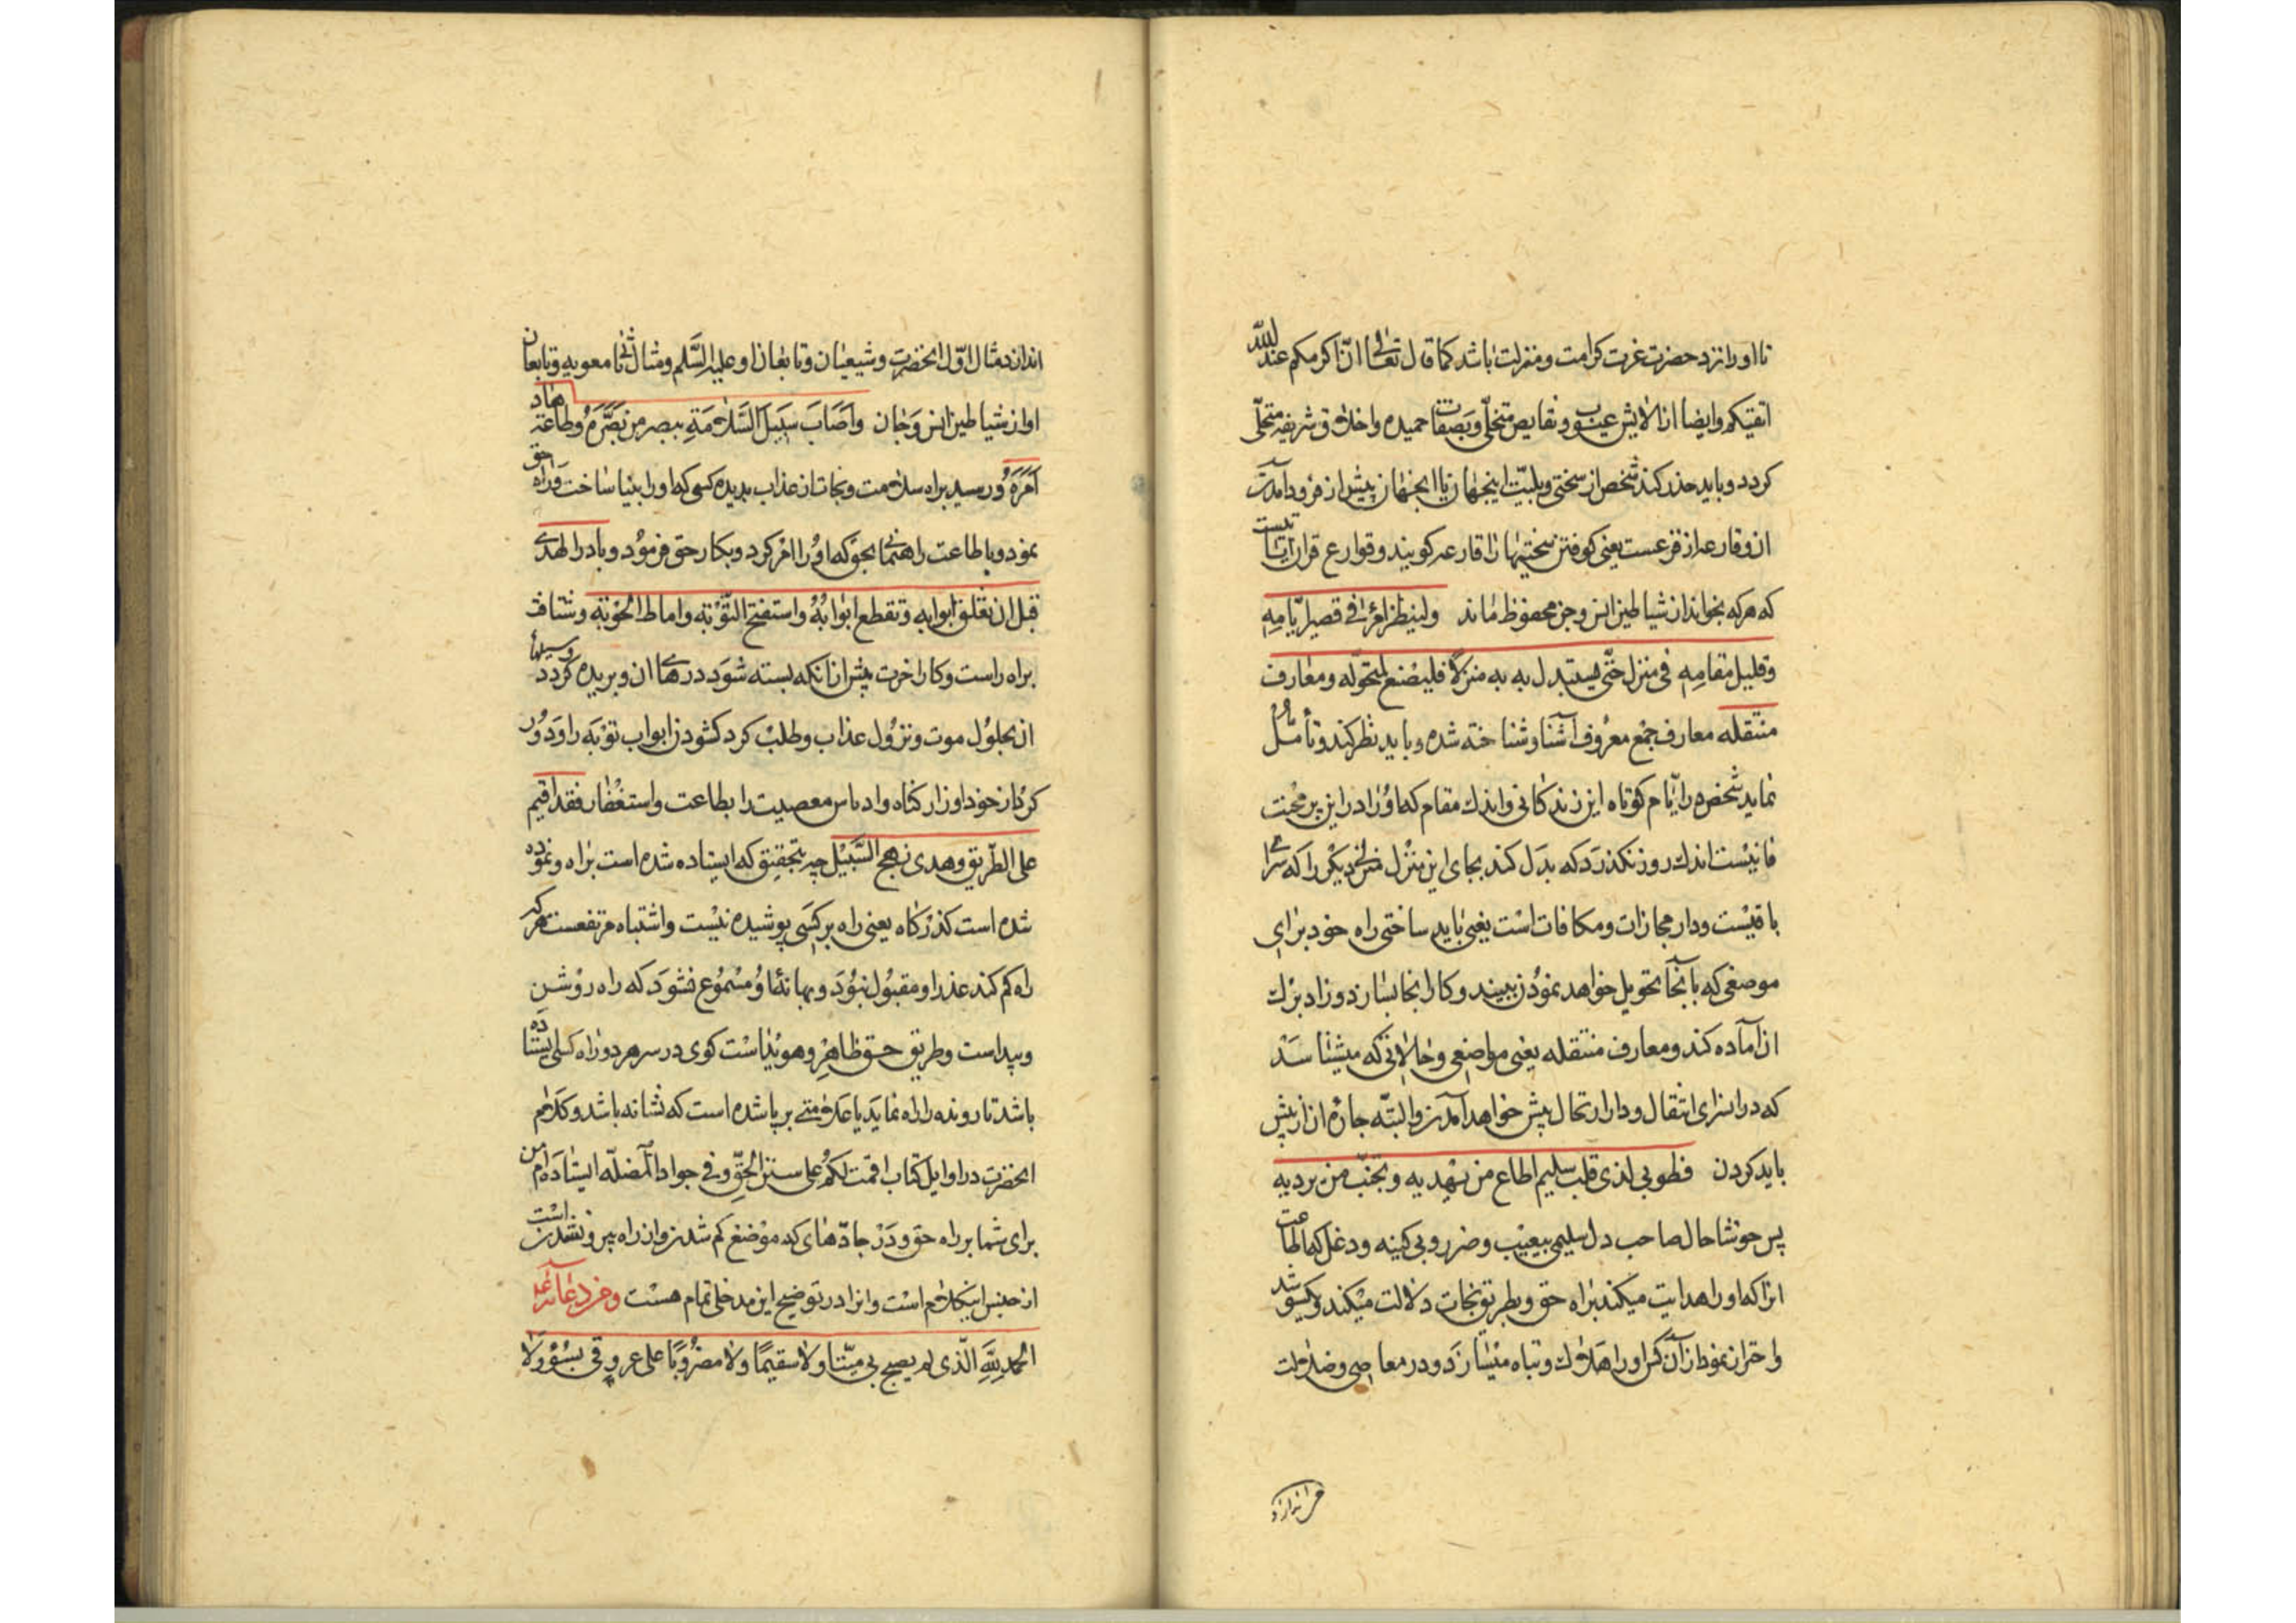 تا او را نزد حضرت عزت کرامت و منزلت باشد کما قال تعالی ان اکرمکم عند الله
اتقیکم و ایضا از الایش عیوب و نقایص متخلی و بصفات حمیده و اخلاق شریفه متحلی
کردد و باید حذر کند شخص از سختی و بلیت اینجهان تا انجهان پیش از فرود آمدن
ان و قارعه از قرعست یعنی کوفتن سختیها را قارعه کویند و قوارع قران ایاتیست
که هر که بخواند از شیاطین انس و جن محفوظ ماند ولینظر امرئ فی قصیر ایامه
و قلیل مقامه فی منزل حتی یستبدل به منزلا فلیصنع لمتحوله و معارف
منتقله معارف جمع معروف آشنا و شناخته شده و باید نظر کند و تأمل
نماید شخص در ایام کوتاه این زندکانی و اندك مقام که او را در این پر محنت
فانیست اندك روز نکذرد که بدل کند بجای این منزل منزل دیکر را که سرای
باقیست و دار مجازات و مکافات است یعنی باید ساختی راه خود برای
موضعی که بانجا تحویل خواهد نمودن ببیند و کار انجا بسازد و زاد برك
ان آماده کند و معارف منتقله یعنی مواضعی و حالاتی که میشناسد
که در سرای انتقال و دار ارتحال پیش خواهد آمدن و البته چاره ان از پیش
باید کردن فطوبی لذی قلب سلیم اطاع من یهدیه و تجنب من یردیه
پس خوشا حال صاحب دل سلیمی بیعیب و ضرر و بی کینه و دغل که اطاعت
انرا که او را هدایت میکند براه حق و بطریق نجات دلالت میکند و یکسو شد
و احتراز نمود از آن کس او را هلاك و تباه میسازد و در معاصی و ضلالت
می اندازد
اندازد مثال اول انحضرت و شیعیان و تابعان او علیه السلم و مثال ثانی معویه و تابعان
او از شیاطین انس و جان و اصاب سبیل السلامة ببصر من بصره و طاعة هاد
امره و رسید براه سلامت و نجات از عذاب بدیده کسی که او را بینا ساخت و راه حق
نمود و با طاعت راهنمائی بحق که او را امر کرد و بکار حق فرمود و بادر الهدی
قبل ان تغلق ابوابه و تقطع ابوابه و استفتح التوبه و اماط الحوبه و شتافت
براه راست و کار اخرت پیش از انکه بسته شود درهای ان و بریده کردد وسیلها
ان بحلول موت و نزول عذاب و طلب کرد کشودن ابواب توبه را و دور
کرد از خود اوزار کناه و ادناس معصیت را بطاعت و استغفار فقد اقیم
علی الطریق و هدی نهج السبیل چه بتحقیق که ایستاده شده است براه و نموده
شده است کذرکاه یعنی راه بر کسی پوشیده نیست و اشتباه مرتفعست هر که
راه کم کند عذر او مقبول نبود و بهانه او مسموع نشود که راه روشن
و پیداست و طریق حق ظاهر و هویداست کوی در سر هر دو راه کسی ایستاده
باشد تا رونده را راه نماید یا علامتی بر پا شده است که نشانه باشد و کلام
انحضرت در اوایل کتاب اقمت لکم علی سنن الحق و فی جواد المضله ایستاده ام من
برای شما بر راه حق و در جادهای که موضع کم شدن و از راه بیرون شدنست
از جنس این کلام است و انرا در توضیح این مدخلی تمام هست و من دعائه ع
الحمد لله الذی لم یصبح بی میتا ولا سقیما ولا مضروبا علی عروقی بسوء ولا